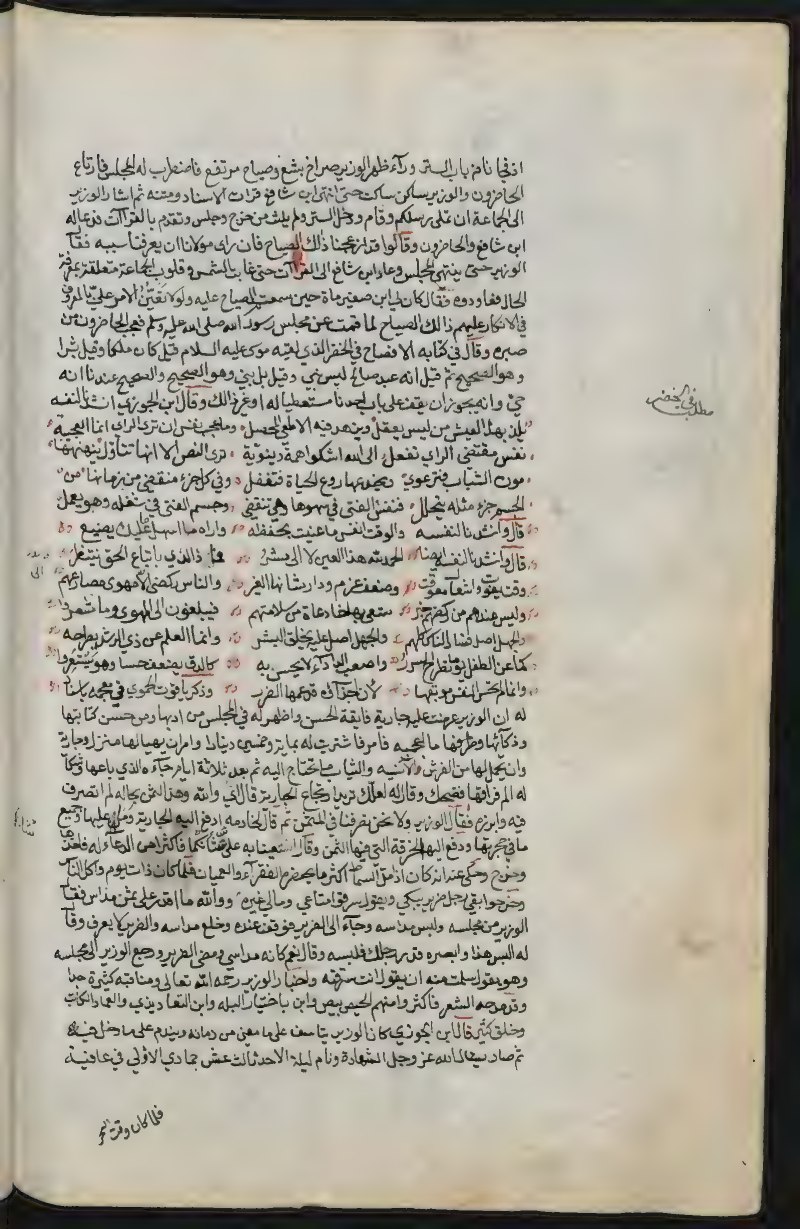 اذ فجأنا من باب الستر وراء ظهر الوزير صراخ بشع وصياح مرتفع فاضطرب له المجلس فارتاع
الحاضرون والوزير ساكن ساكت حتى انتهى ابن شافع قراءة الاسناد ومتنه ثم اشار الوزير
الى الجماعة ان على رسلكم وقام ودخل الستر ولم يلبث ان خرج وجلس وتقدم بالقراءت فدعا له
ابن شافع والحاضرون وقالوا قد ازعجنا ذلك الصياح فان راى مولانا ان يعرفنا سببه فقال
الوزير حتى ينتهي المجلس وعاد ابن شافع الى القرآت حتى غابت الشمس وقلوب الجماعة متعلقة بمعرفة
الحال فعاودوه فقال كان لي ابن صغير مات حين سمعتم الصياح عليه ولولا تعين الامر علي بالمعروف
في الانكار عليهم ذالك الصياح لما قمت عن مجلس رسول الله صلى الله عليه وسلم فعجب الحاضرون من
صبره وقال في كتابه الافصاح في الخضر الذي لقيه موسى عليه السلام قيل كان ملكا وقيل بشرا
وهو الصحيح ثم قيل انه عبد صالح ليس بنبي وقيل بل نبي وهو الصحيح والصحيح عندنا انه
حي وانه يجوز ان يقف على باب احدنا مستعطيا له او غير ذالك وقال ابن الجوزي انشدنا لنفسه
يلذ بهذا العيش من ليس يعقل ويزهد فيه الالمعي المحصل وما عجب نفس ان ترى الراي انما العجيبة
نفس مقتضى الراي تفعل الى الله اشكو همة دنيوية ترى النص الا انها تتأول ينهنهها
موت الشباب فترعوي ويخدعها روح الحياة فتغفل وفي كل جزء منقضي من زمانها من
الجسم جزء مثله يتحلل فنفس الفتى في سهوها وهي تنقضي وجسم الفتى في شغله وهو يعمل
قال وانشدنا لنفسه والوقت انفس ما عنيت بحفظه واراه ما اسهل عليك يضيع
قال وانشدنا لنفسه ايضا الحمد لله هذا العين لا الاثر فما الذي باتباع الحق ينتظر
وقت يفوت واشغال معوقة وضعف عزم ودار شانها الغير والناس ركضى الى مهوى مصارعهم
وليس عندهم من ركضهم خبر تسعى بهم خادعات من سلامتهم فيبلغون الى المهوى وما شعروا
والجهل اصل فساد الناس كلهم والجهل اصل عليه يخلق البشر وانما العلم عن ذي الرشد يطرحه
كما عن الطفل يوما تطرح السرر واصعب الداء داء لا يحس به كالدق يضعف حسا وهو يستعر
وانما لم تحس النفس موبقها لان اجزاءه قد عمها الضرر وذكر ياقوت الحموي في معجمه باسناد
له ان الوزير عرضت عليه جارية فايقة الحسن واظهر له في المجلس من ادبها ومن حسن كتابتها
وذكائها وظرفها ما اعجبه فامر فاشتريت له بماية وخمسين دينارا وامر ان يهيأ لها منزل وجارية
وان يحمل لها من الفرش والآنية والثياب ما تحتاج اليه ثم بعد ثلاثة ايام جاءه الذي باعها وشكا
له الم فراقها فضحك وقال له لعلك تريد ارتجاع الجارية قال اي والله وهذا الثمن بحاله لم اتصرف
فيه وابرزه فقال الوزير ولا نحن تصرفنا في المثمن ثم قال لخادمه ادفع اليه الجارية وما عليها وجميع
ما في حجرتها ودفع اليه الخرقة التي فيها الثمن وقال استعينا به على شأنكما فاكثرا من الدعاء له فاخذها
وخرج وحكى عنه انه كان اذا مد السماط اكثر ما يحضره الفقراء والعميان فلما كان ذات يوم واكل الناس
وخرجوا بقي رجل ضرير يبكي ويقول سرقوا متاعي ومالي غيره ووالله ما اقدر على ثمن مداس فقام
الوزير من مجلسه ولبس مداسه وجاء الى الضرير فوقف عنده وخلع مداسه والضرير لا يعرف وقال
له البس هذا وابصره قدر رجلك فلبسه وقال نعم كانه مداسي ومضى الضرير ورجع الوزير الى مجلسه
وهو يقول سلمت منه ان يقول انت سرقته واخبار الوزير رحمه الله تعالى ومناقبه كثيرة جدا
وقد مدحه الشعراء فاكثروا منهم الحيص بيص وابن بختيار الابله وابن التعاويذي والعماد الكاتب
وخلق كثير قال ابن الجوزي كان الوزير يتاسف على ما مضى من زمانه ويندم على ما دخل فيه
ثم صار يسال الله عز وجل الشهادة ونام ليلة الاحد ثالث عشر جمادي الاولى في عافية
فلما كان وقت السحر
مطلب في الخضر